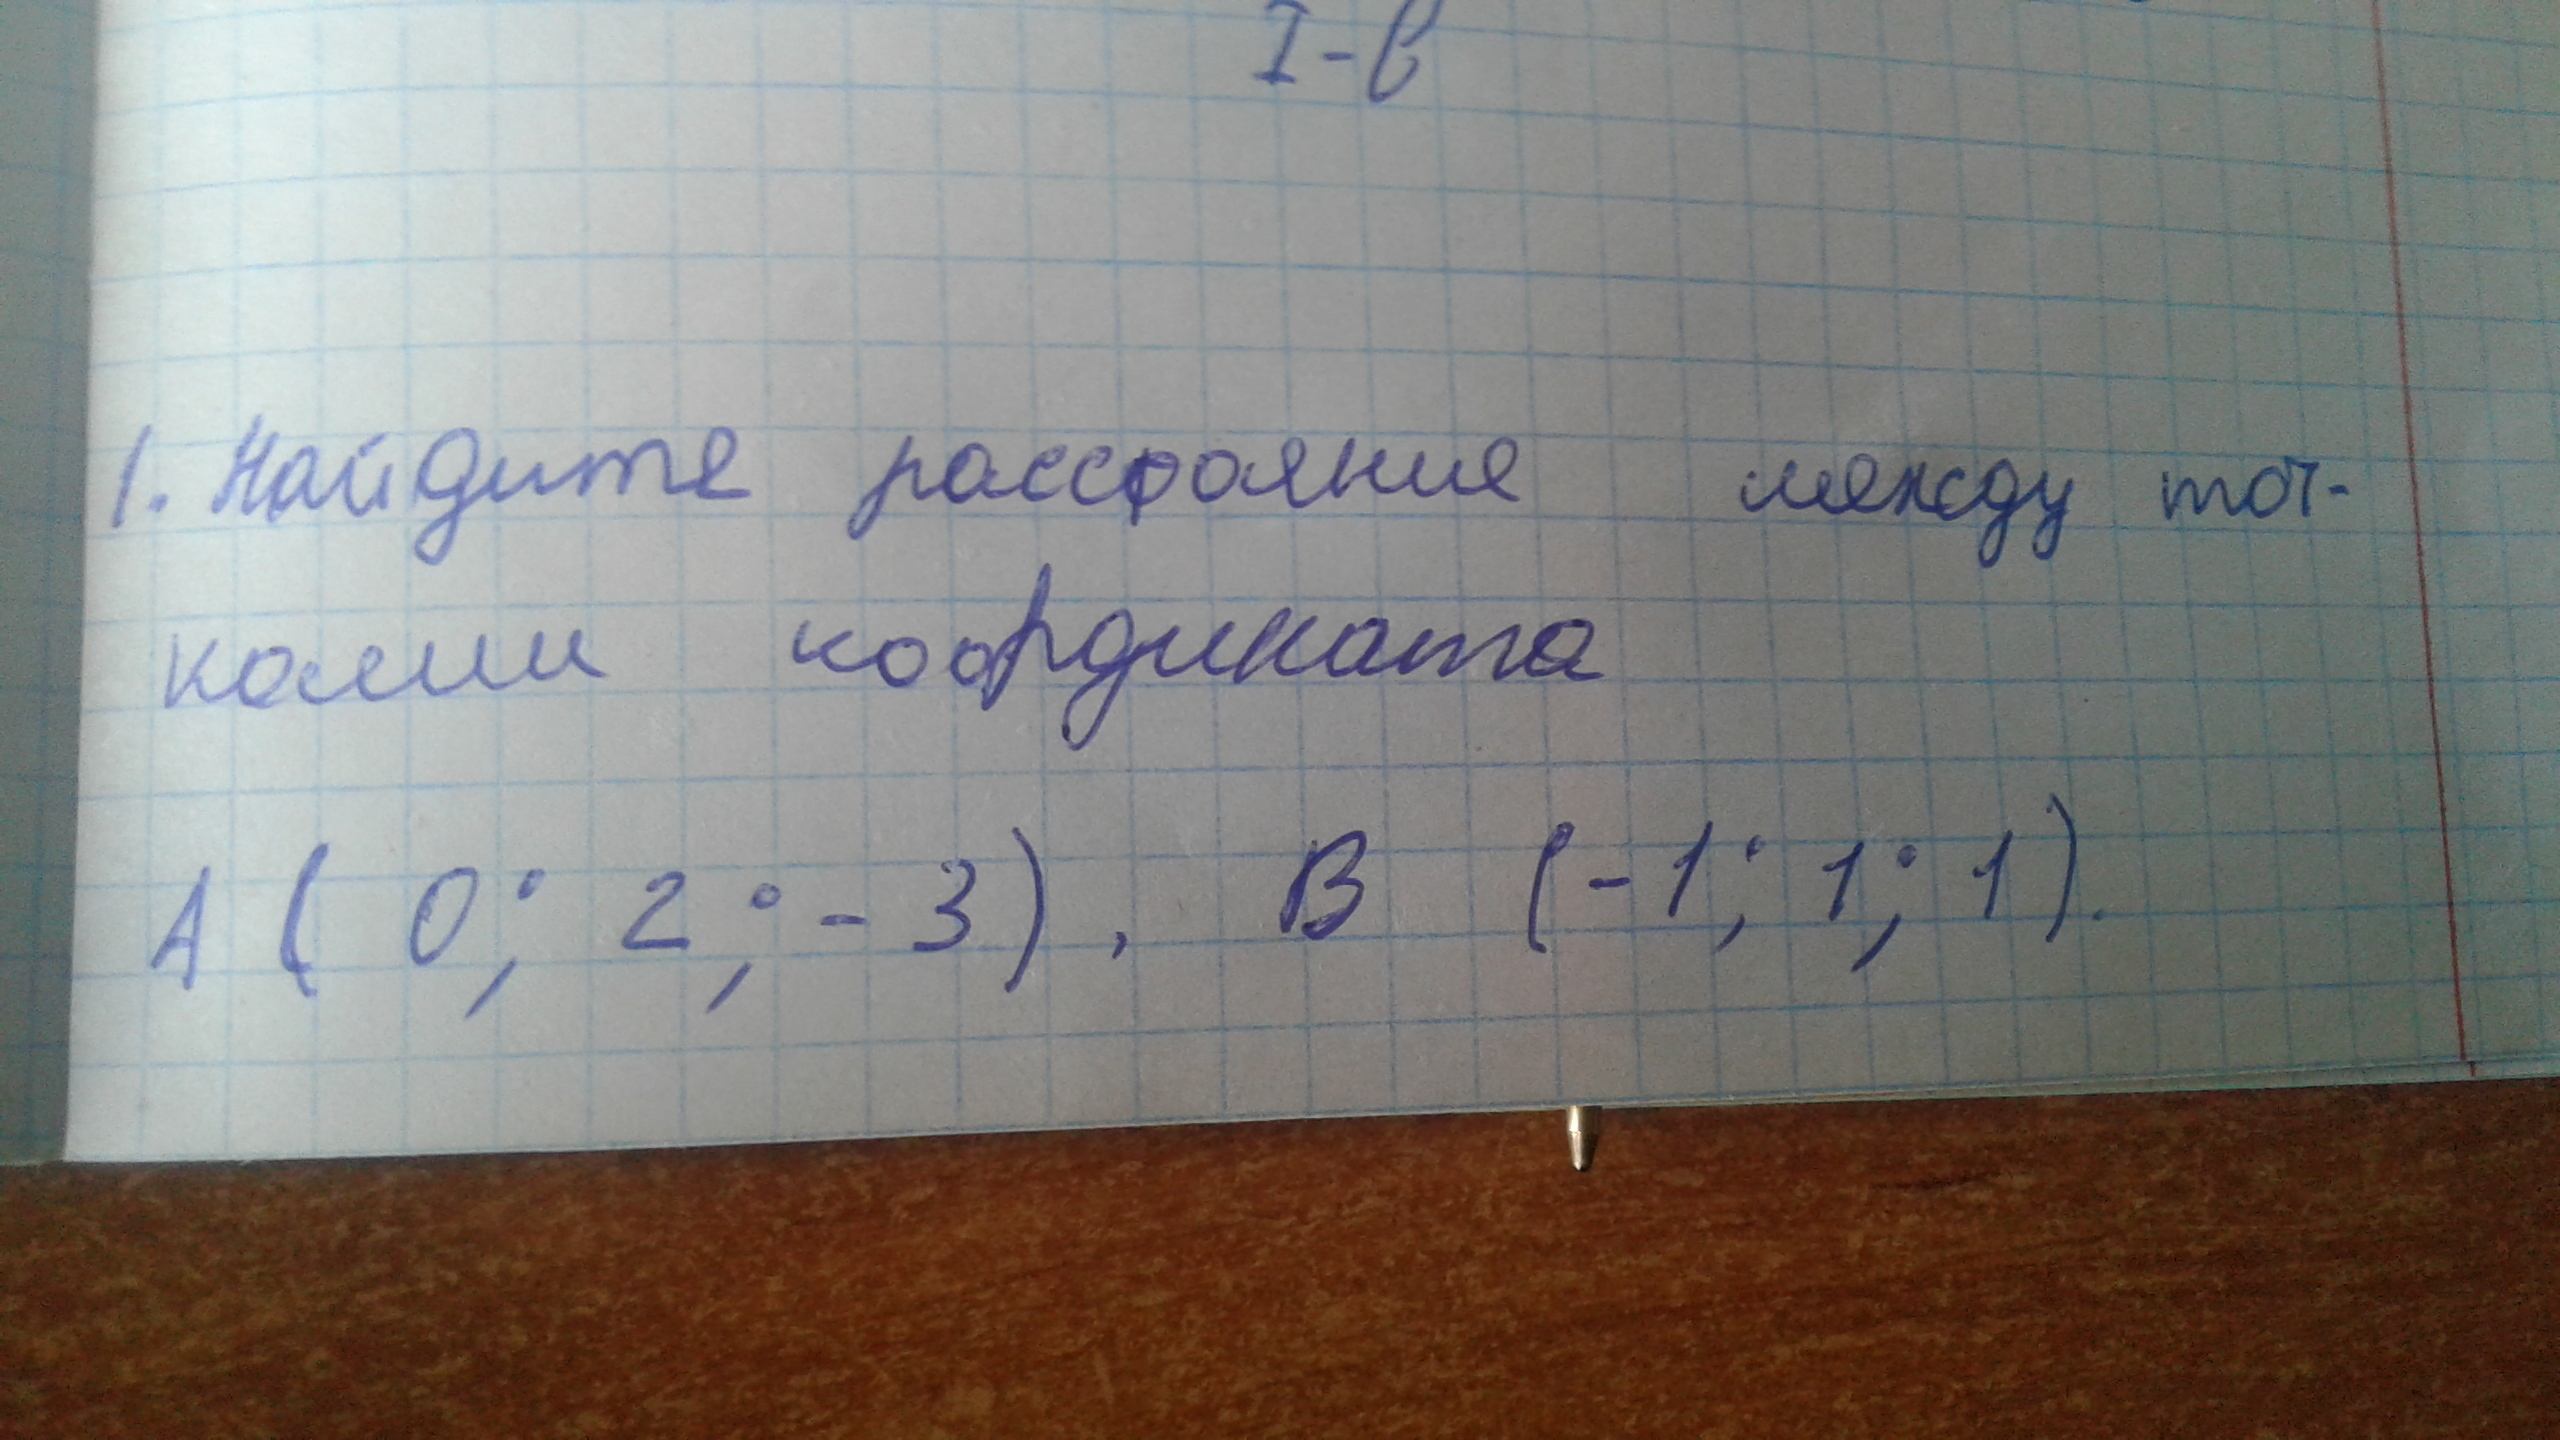 I-В
1. Найдите расстояние между точ-
ками координата
A (0; 2; -3), B (-1; 1; 1).